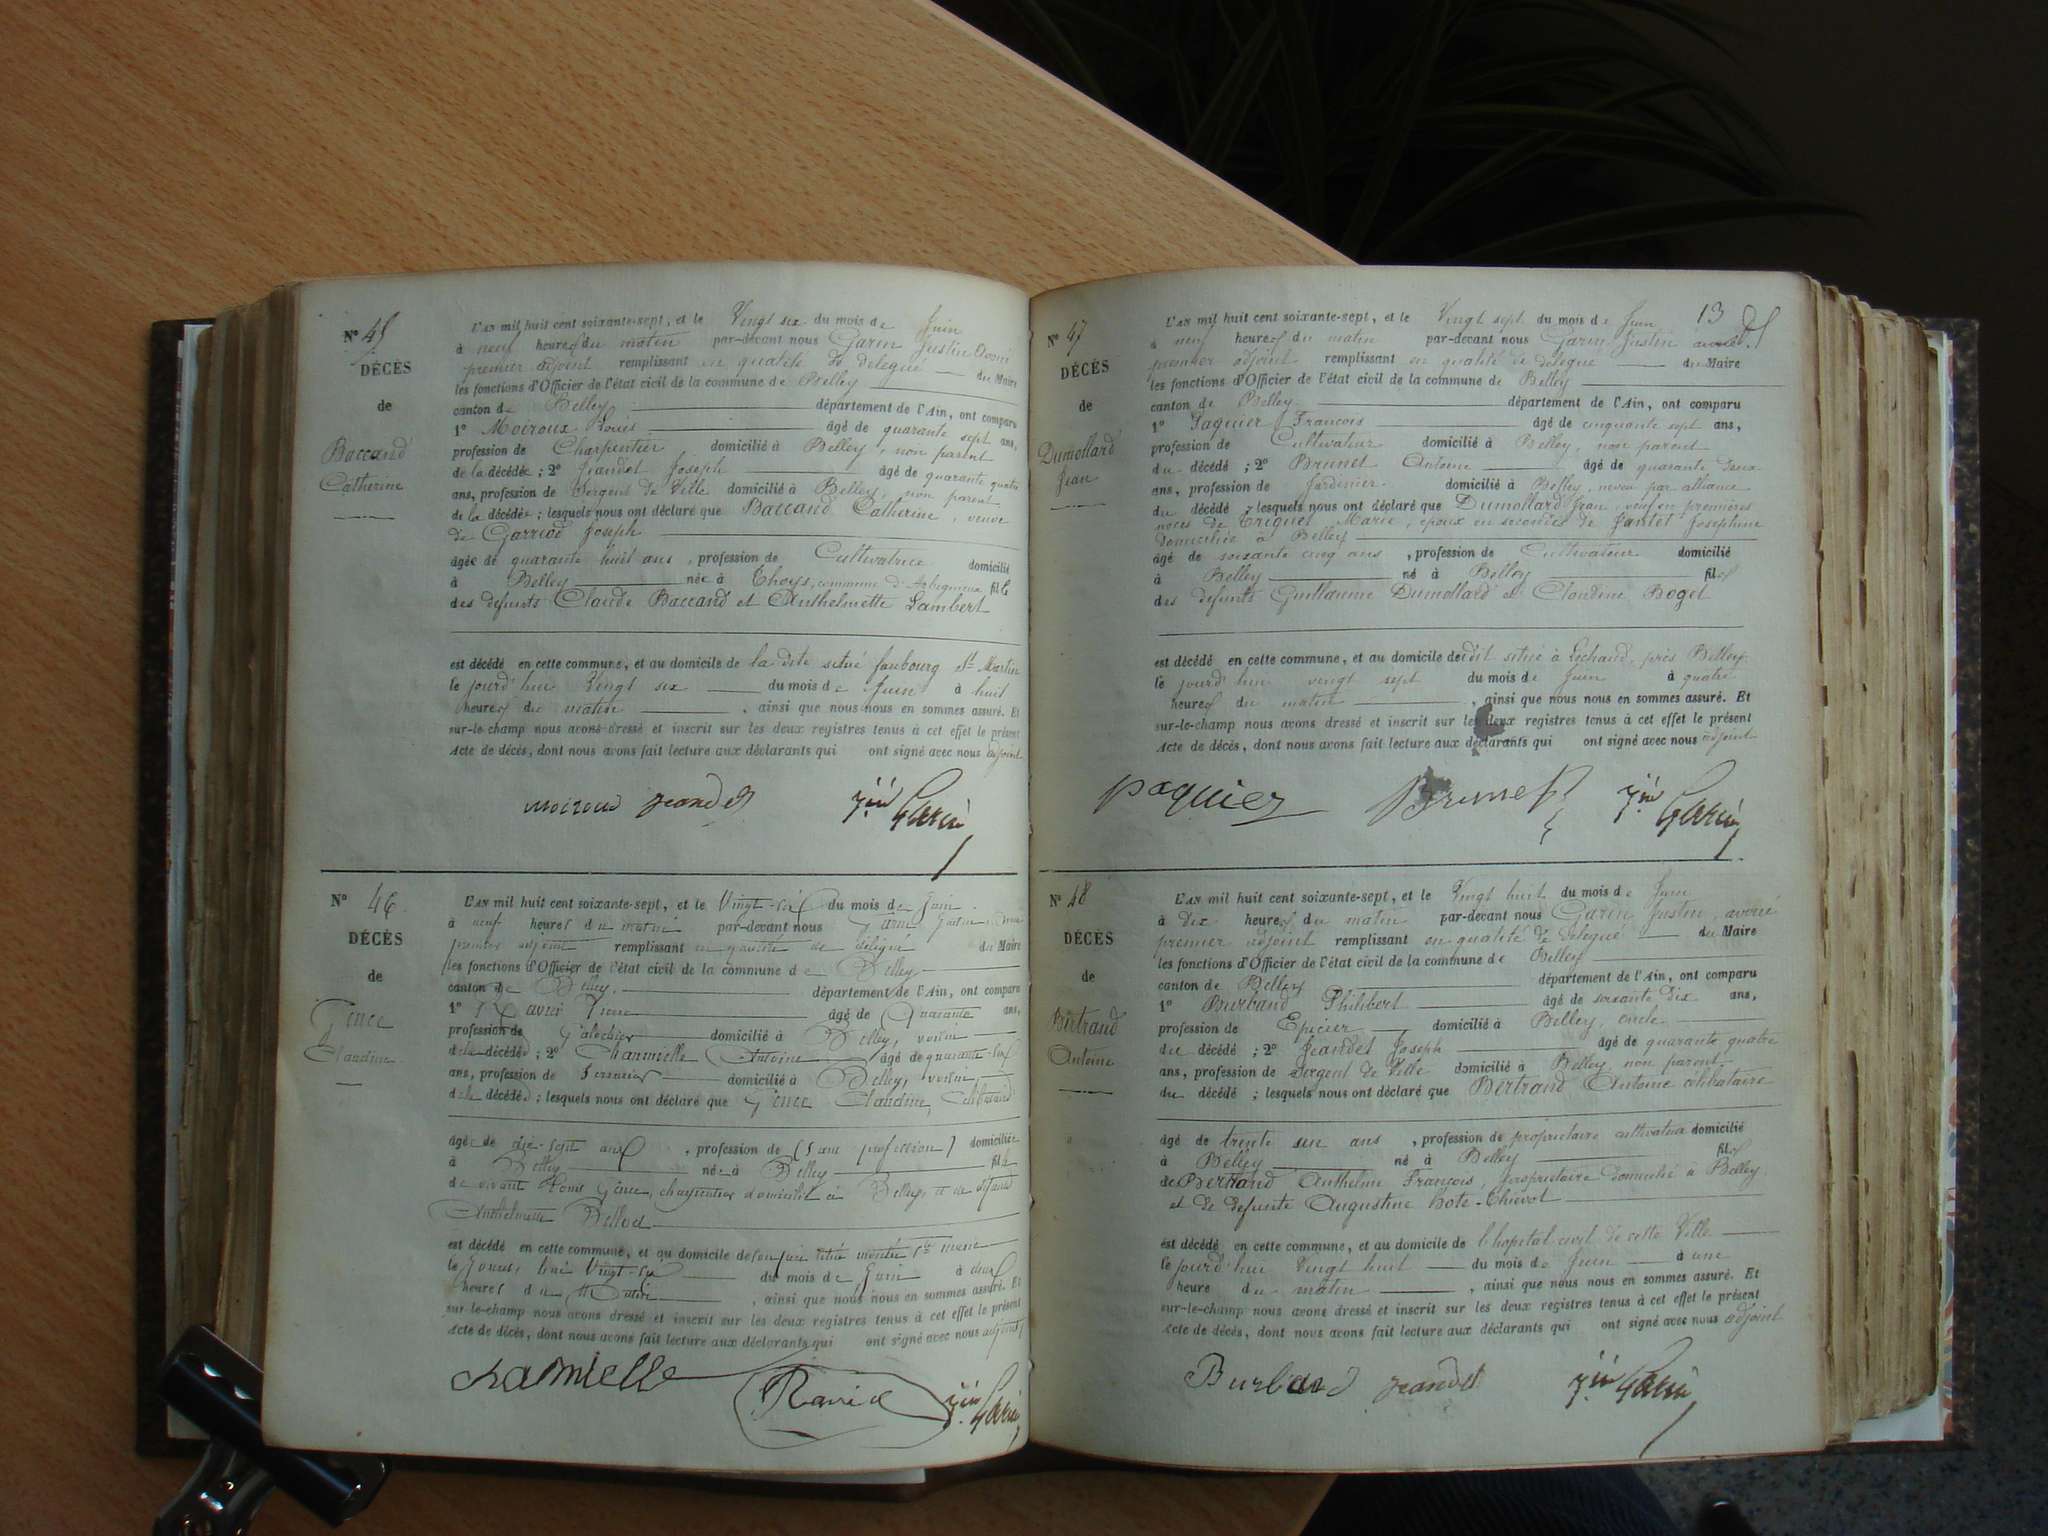 N° 45
DÉCÈS
de
Baccand
Catherine
L'AN mil huit cent soixante-sept, et le Vingt six du mois de Juin
à neuf heures du matin par-devant nous Garin Justin
premier adjoint remplissant en qualité de délégué du Maire
les fonctions d'Officier de l'état civil de la commune de Belley
canton de Belley département de l'Ain, ont comparu
1° Moiroux Louis âgé de quarante sept ans,
profession de Charpentier domicilié à Belley, non parent
de la décédée ; 2° Jeandet Joseph âgé de quarante quatre
ans, profession de Sergent de Ville domicilié à Belley, non parent
de la décédée ; lesquels nous ont déclaré que Baccand Catherine, veuve
de Joseph
âgée de quarante huit ans, profession de Cultivatrice domicilié
à Belley née à Thoys, commune d'Arbignieu fille
des defunts Claude Baccand et Anthelmette Lambert
est décédé en cette commune, et au domicile de la dite situé faubourg St Martin
le jourd'hui Vingt six du mois de Juin à huit
heures du matin, ainsi que nous nous en sommes assuré. Et
sur-le-champ nous avons dressé et inscrit sur les deux registres tenus à cet effet le présent
Acte de décès, dont nous avons fait lecture aux déclarants qui ont signé avec nous adjoint
moiroux jeandet Jin Garin
N° 46
DÉCÈS
de
Gence
Claudine
L'AN mil huit cent soixante-sept, et le Vingt-six du mois de Juin
à neuf heures du matin par-devant nous Garin Justin
premier adjoint remplissant en qualité de délégué du Maire
les fonctions d'Officier de l'état civil de la commune de Belley
canton de Belley département de l'Ain, ont comparu
1° Pierre âgé de Quarante ans,
profession de Galochier domicilié à Belley, voisin
de la décédée ; 2° Antoine âgé de quarante-six
ans, profession de Serrurier domicilié à Belley, voisin
de la décédée ; lesquels nous ont déclaré que Gence Claudine, Célibataire
âgée de dix-sept ans, profession de (sans profession) domiciliée
à Belley née à Belley fille
de vivant Louis Gence, charpentier domicilié à Belley, et de défunte
Anthelmette
est décédé en cette commune, et au domicile de son père situé montée
le jourd'hui Vingt-six du mois de Juin à deux
heures du Matin, ainsi que nous nous en sommes assuré. Et
sur-le-champ nous avons dressé et inscrit sur les deux registres tenus à cet effet le présent
Acte de décès, dont nous avons fait lecture aux déclarants qui ont signé avec nous adjoint
Jin Garin
13
N° 47
DÉCÈS
de
Dumollard
Jean
L'AN mil huit cent soixante-sept, et le Vingt sept du mois de Juin
à neuf heures du matin par-devant nous Garin Justin avoué
premier adjoint remplissant en qualité de délégué du Maire
les fonctions d'Officier de l'état civil de la commune de Belley
canton de Belley département de l'Ain, ont comparu
1° Paquier François âgé de cinquante sept ans,
profession de Cultivateur domicilié à Belley, non parent
du décédé ; 2° Brunet Antoine âgé de quarante deux
ans, profession de Jardinier domicilié à Belley, neveu par alliance
du décédé ; lesquels nous ont déclaré que Dumollard Jean, veuf en premières
noces de Triquet Marie, époux en secondes de Jantet Josephine
domiciliée à Belley
âgé de soixante cinq ans, profession de Cultivateur domicilié
à Belley né à Belley fils
des defunts Guillaume Dumollard et Claudine Boget
est décédé en cette commune, et au domicile de dit situé à Lechaud, près Belley
le jourd'hui vingt sept du mois de Juin à quatre
heures du matin, ainsi que nous nous en sommes assuré. Et
sur-le-champ nous avons dressé et inscrit sur les deux registres tenus à cet effet le présent
Acte de décès, dont nous avons fait lecture aux déclarants qui ont signé avec nous adjoint
paquier Brunet Jin Garin
N° 48
DÉCÈS
de
Bertrand
Antoine
L'AN mil huit cent soixante-sept, et le Vingt huit du mois de Juin
à dix heures du matin par-devant nous Garin Justin, avoué
premier adjoint remplissant en qualité de délegué du Maire
les fonctions d'Officier de l'état civil de la commune de Belley
canton de Belley département de l'Ain, ont comparu
1° Burband Philibert âgé de soixante dix ans,
profession de Epicier domicilié à Belley, oncle
du décédé ; 2° Jeandet Joseph âgé de quarante quatre
ans, profession de Sergent de Ville domicilié à Belley, non parent
du décédé ; lesquels nous ont déclaré que Bertrand Antoine célibataire
âgé de trente un ans, profession de propriétaire cultivateur domicilié
à Belley né à Belley fils
de Bertrand Anthelme François, propriétaire domicilié à Belley
et de defunte Augustine
est décédé en cette commune, et au domicile de l'hopital civil de cette Ville
le jourd'hui Vingt huit du mois de Juin à une
heure du matin, ainsi que nous nous en sommes assuré. Et
sur-le-champ nous avons dressé et inscrit sur les deux registres tenus à cet effet le présent
Acte de décès, dont nous avons fait lecture aux déclarants qui ont signé avec nous adjoint
Burband jeandet Jin Garin